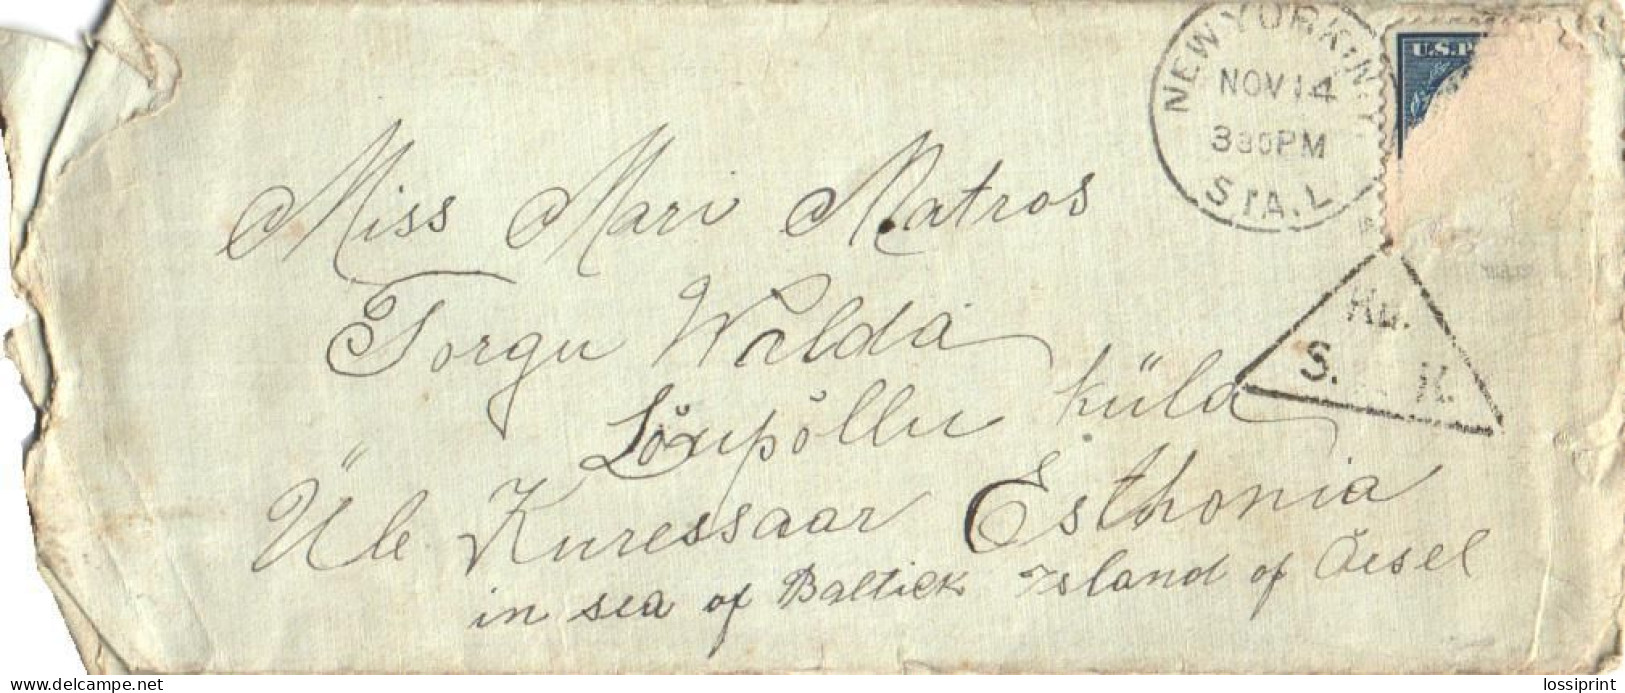 NEW YORK, N.Y.
NOV 14
330 PM
STA. L
U.S.P
Miss Mari Matros
Torgu Walda
Lõupõllu küla
Üle Kuressaar Esthonia
in sea of Baltick Island of Oesel
S. K.
lossiprint